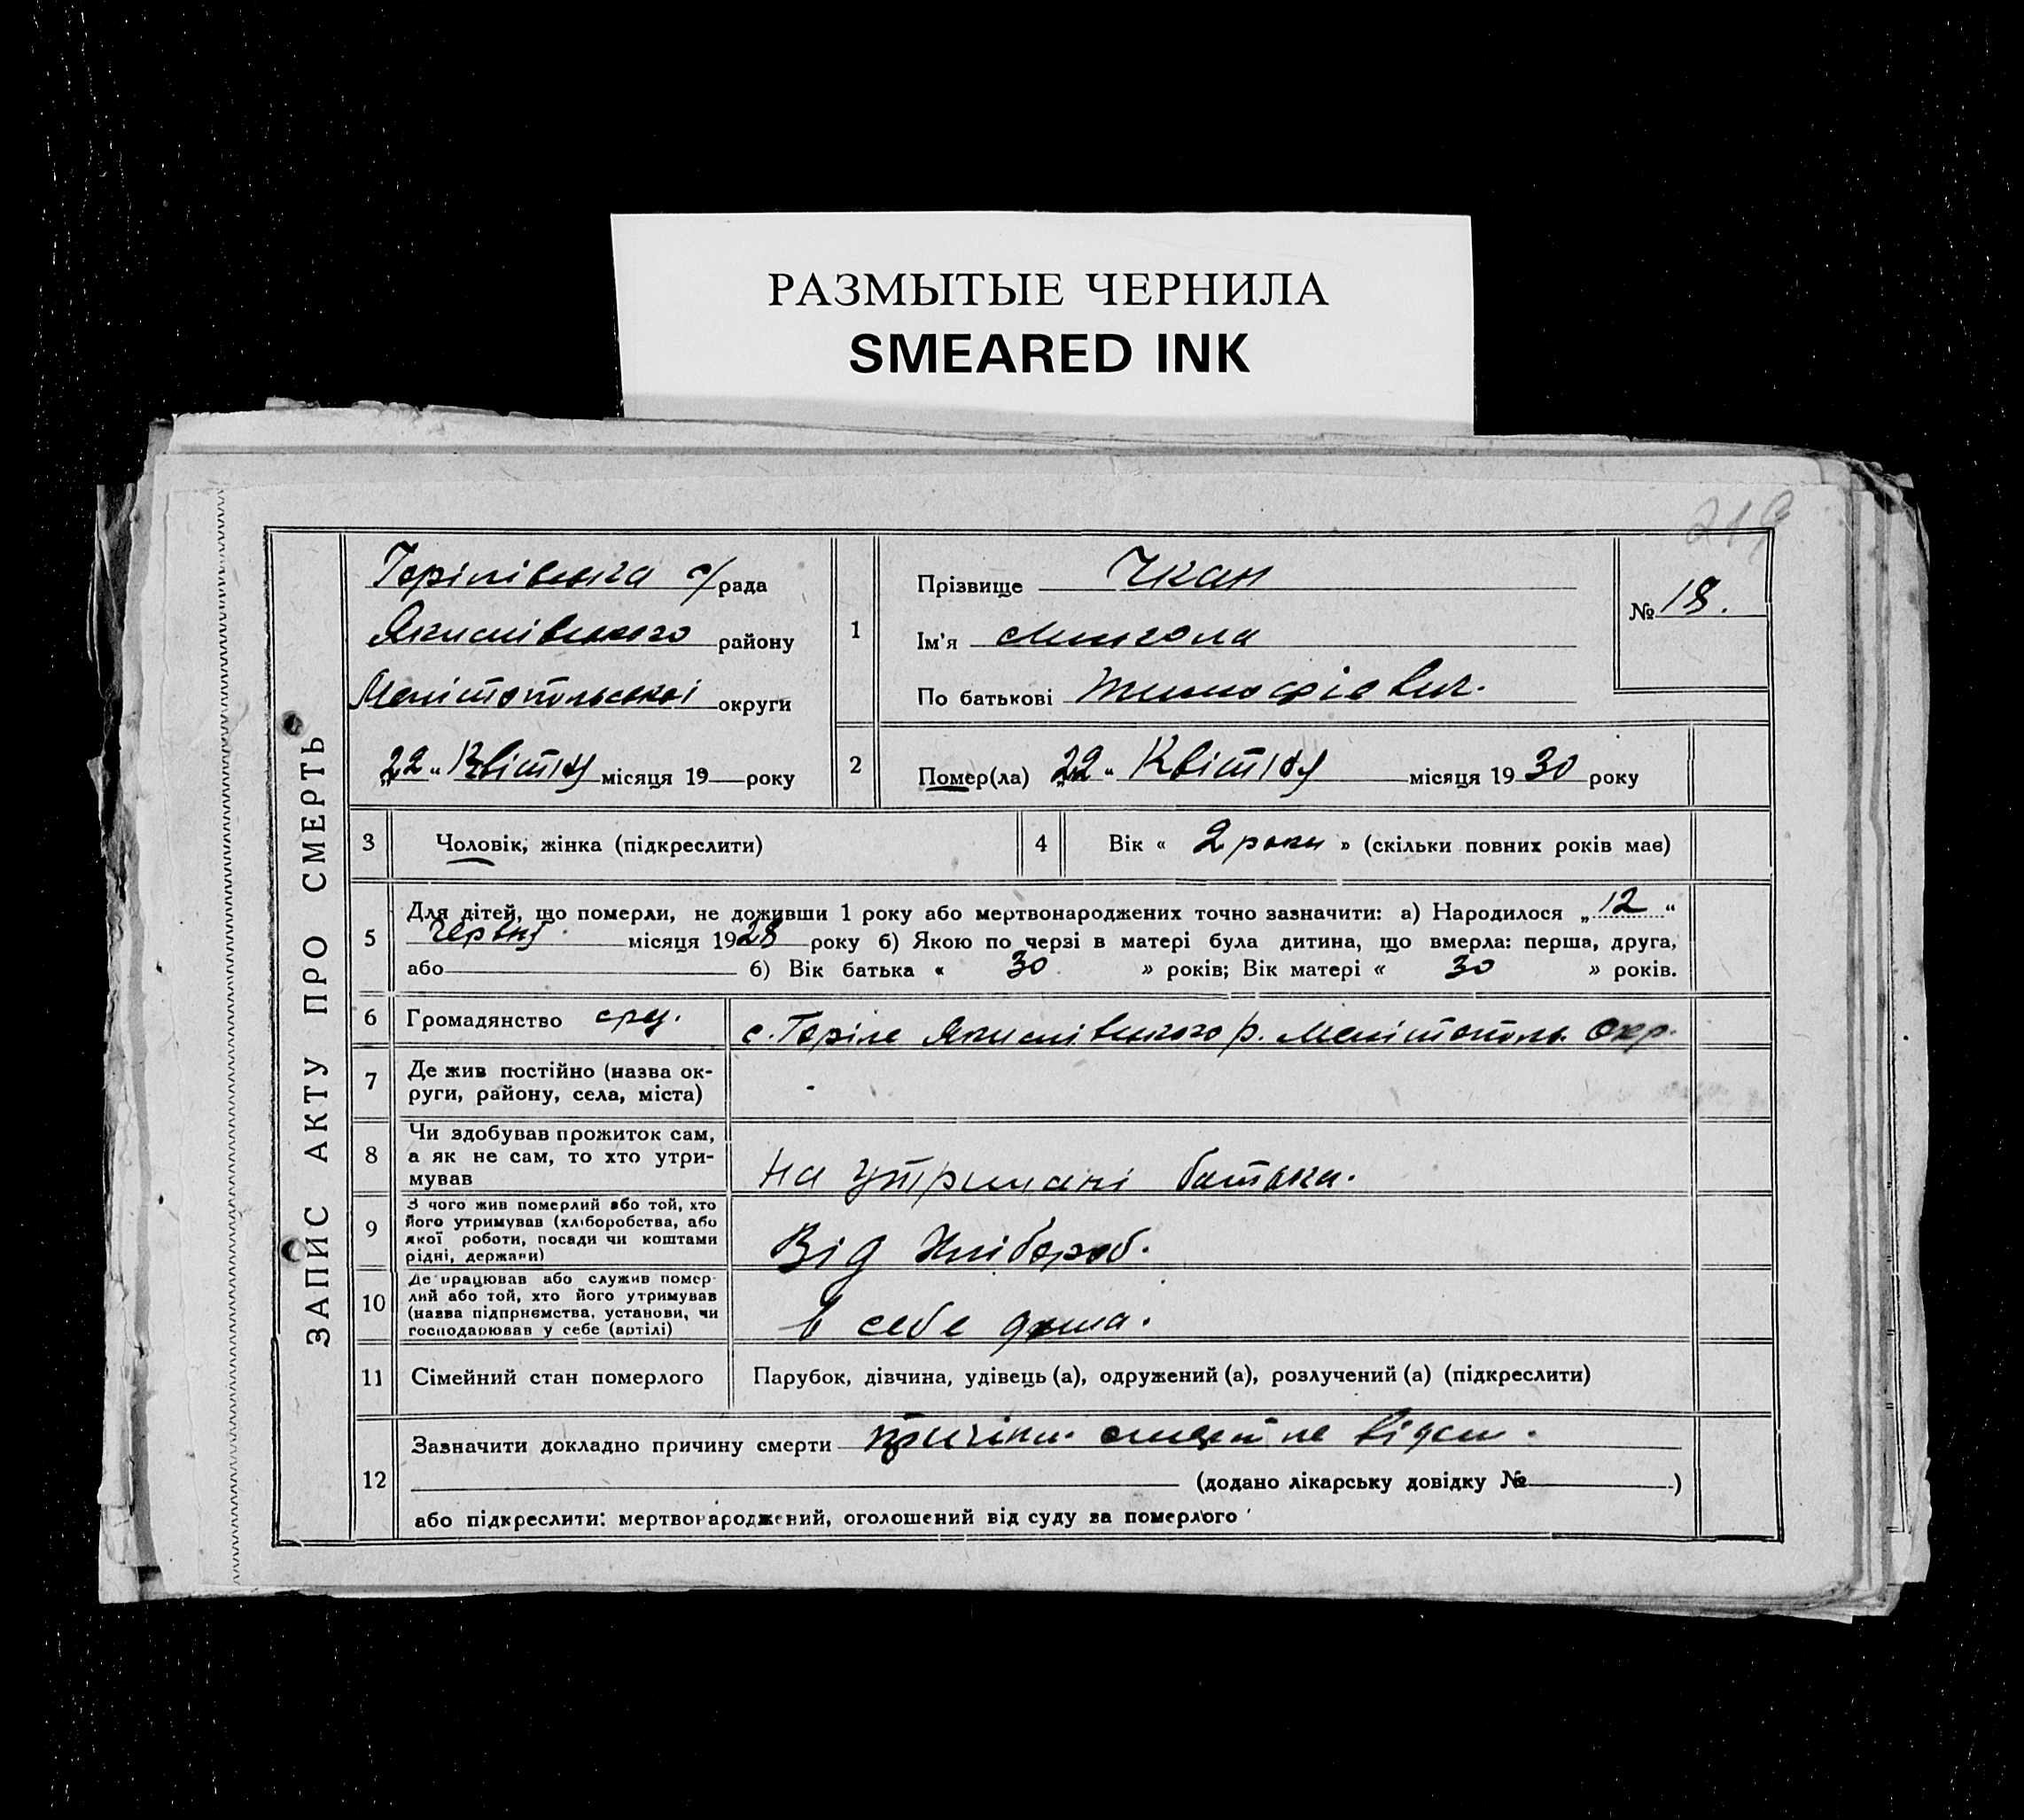 РАЗМЫТЫЕ ЧЕРНИЛА
SMEARED INK
219
ЗАПИС АКТУ ПРО СМЕРТЬ
Горілівська с/рада
Якимівського району
Мелітопольської округи
„22“ Квітня місяця 19 року
1
Прізвище Чкан
Ім'я Микола
По батькові Тимофієвич.
№ 18.
2
Помер(ла) „22“ Квітня місяця 1930 року
3
Чоловік, жінка (підкреслити)
4
Вік « 2 роки » (скільки повних років має)
5
Для дітей, що померли, не доживши 1 року або мертвонароджених точно зазначити: а) Народилося „12“
Червня місяця 1928 року б) Якою по черзі в матері була дитина, що вмерла: перша, друга,
або б) Вік батька « 30 » років; Вік матері « 30 » років.
6
Громадянство срср.
с. Горіле Якимівського р. Мелітополь. Окр.
7
Де жив постійно (назва ок-
руги, району, села, міста)
8
Чи здобував прожиток сам,
а як не сам, то хто утри-
мував
На утримані батька.
9
З чого жив померлий або той, хто
його утримував (хліборобства, або
якої роботи, посади чи коштами
рідні, держави)
Від Хлібороб.
10
Де працював або служив помер-
лий або той, хто його утримував
(назва підприємства, установи, чи
господарював у себе (артілі)
в себе дома.
11
Сімейний стан померлого
Парубок, дівчина, удівець (а), одружений (а), розлучений (а) (підкреслити)
12
Зазначити докладно причину смерти причіни смерт не відом.
(додано лікарську довідку № )
або підкреслити: мертвонароджений, оголошений від суду за померлого